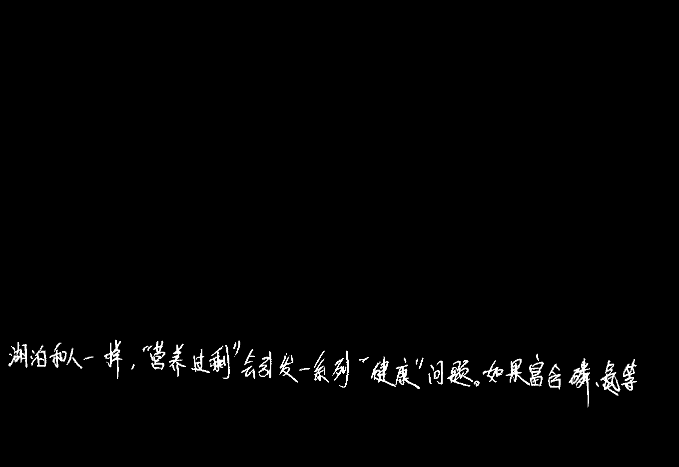 湖泊和人一样，“营养过剩”会引发一系列“健康”问题。如果富含磷、氮等